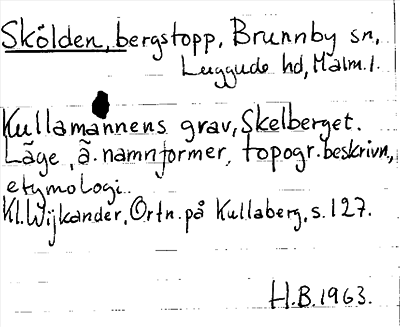 Skölden, bergstopp, Brunnby sn,
Luggude hd, Malm. l.
Kullamannens grav, Skelberget.
Läge, ä. namnformer, topogr. beskrivn.,
etymologi.
Kl. Wijkander, Ortn. på Kullaberg, s. 127.
H.B. 1963.